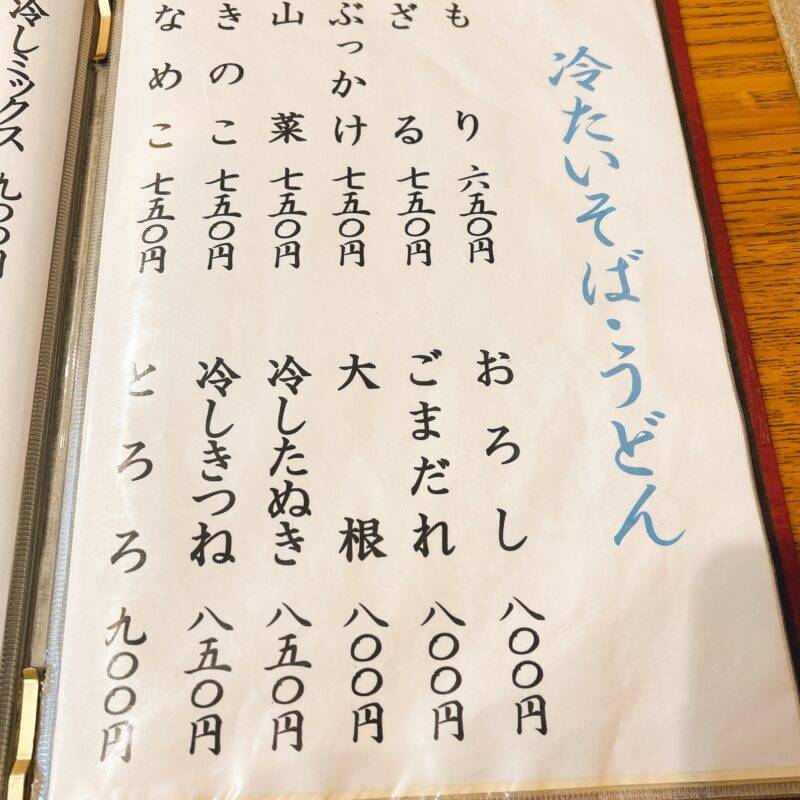 冷たいそば・うどん
もり 六五〇円
ざる 七五〇円
ぶっかけ 七五〇円
山菜 七五〇円
きのこ 七五〇円
なめこ 七五〇円
おろし 八〇〇円
ごまだれ 八〇〇円
大根 八〇〇円
冷したぬき 八五〇円
冷しきつね 八五〇円
とろろ 九〇〇円
冷しミックス 九〇〇円